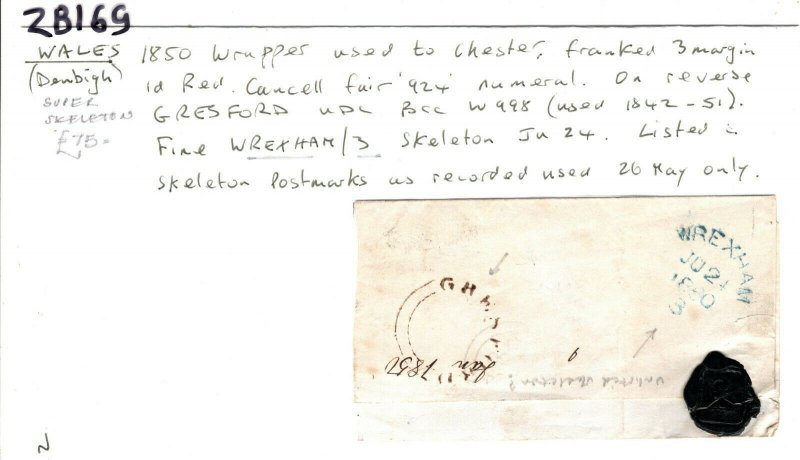 ZB169
WALES 1850 Wrapper used to Chester, franked 3 margin
(Denbigh) 1d Red. Cancell fair '924' numeral. On reverse
SUPER GRESFORD UDC BCC W998 (used 1842-51).
SKELETON
£75= Fine WREXHAM/3 Skeleton JU 24. Listed in
Skeleton Postmarks as recorded used 26 May only.
WREXHAM
JU 24
1850
3
Jan 1850
unlisted skeleton?
N